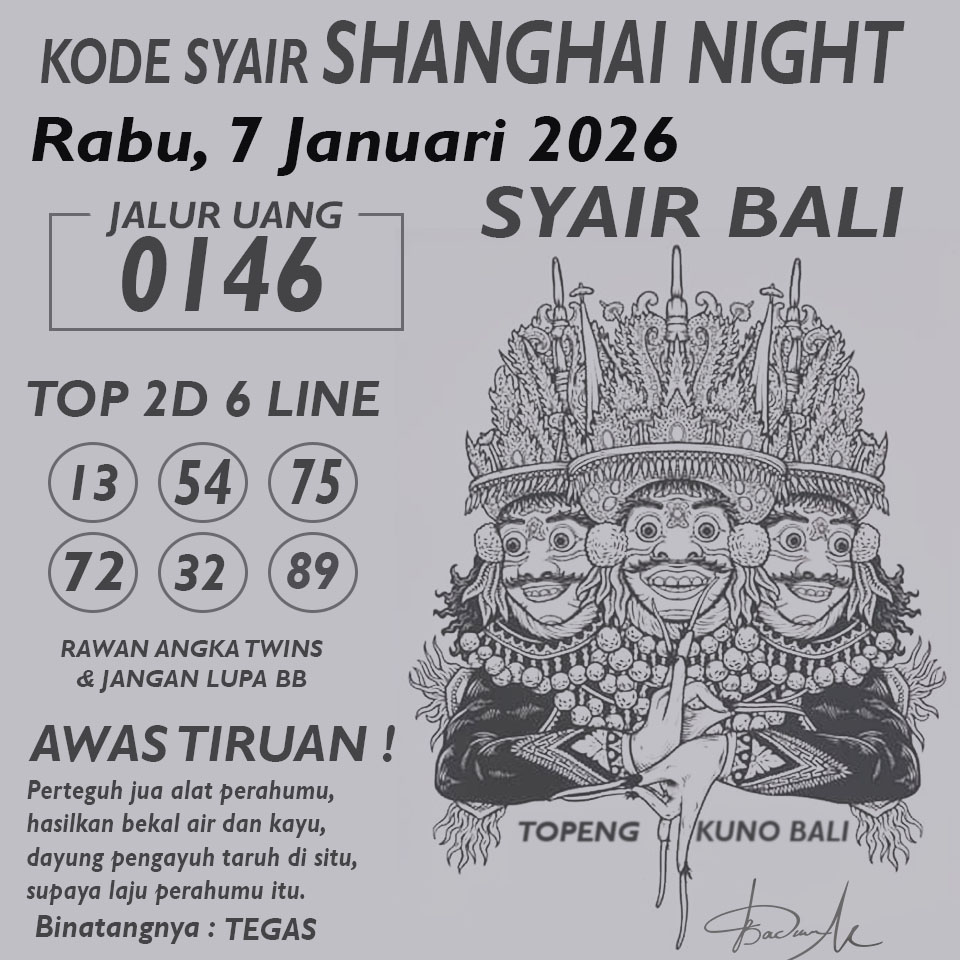 KODE SYAIR SHANGHAI NIGHT
Rabu, 7 Januari 2026
SYAIR BALI
JALUR UANG
0146
TOP 2D 6 LINE
13 54 75
72 32 89
RAWAN ANGKA TWINS
& JANGAN LUPA BB
AWAS TIRUAN !
Perteguh jua alat perahumu,
hasilkan bekal air dan kayu,
dayung pengayuh taruh di situ,
supaya laju perahumu itu.
Binatangnya : TEGAS
TOPENG KUNO BALI